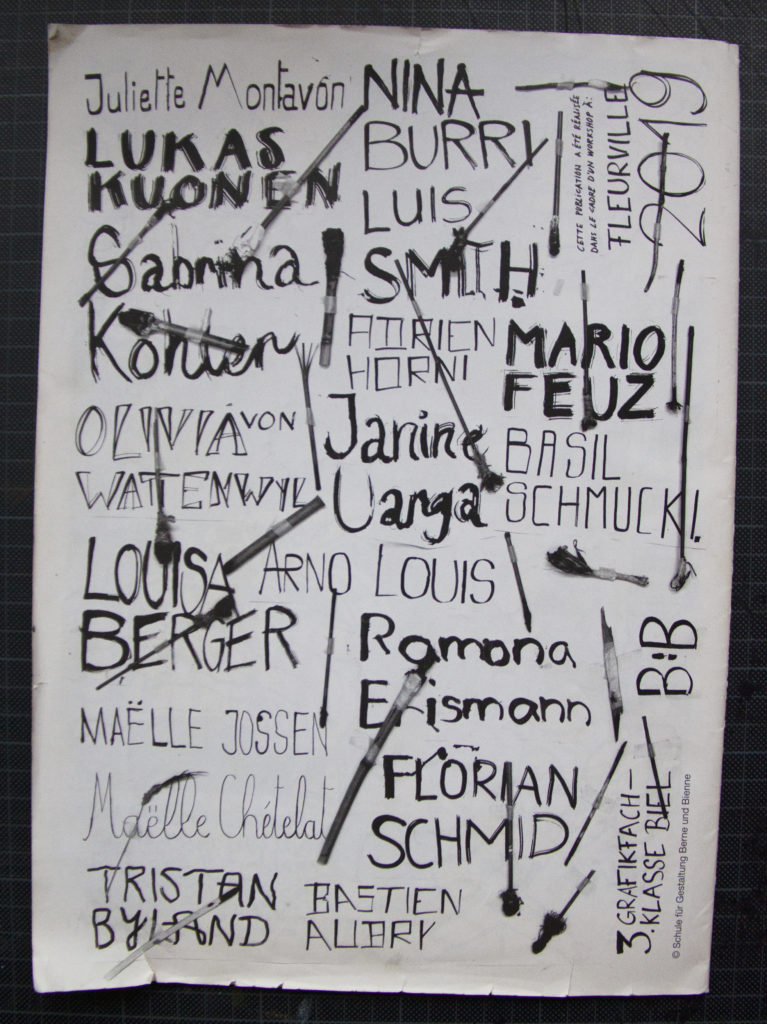 Juliette Montavon
LUKAS
KUONEN
Sabrina
Kohler
OLIVIA VON
WATTENWYL
LOUISA
BERGER
MAËLLE JOSSEN
Maëlle Chételat
TRISTAN
BYLAND
NINA
BURRY
LUIS
SMITH
ADRIEN
HORNI
Janine
Uanga
ARNO LOUIS
Ramona
Erismann
FLORIAN
SCHMID
BASTIEN
AUBRY
MARIO
FEUZ
BASIL
SCHMUCKI.
CETTE PUBLICATION A ÉTÉ RÉALISÉE
DANS LE CADRE D'UN WORKSHOP À:
FLEURVILLE
2019
B:B
3. GRAFIKFACH-
KLASSE BIEL
© Schule für Gestaltung Berne und Bienne